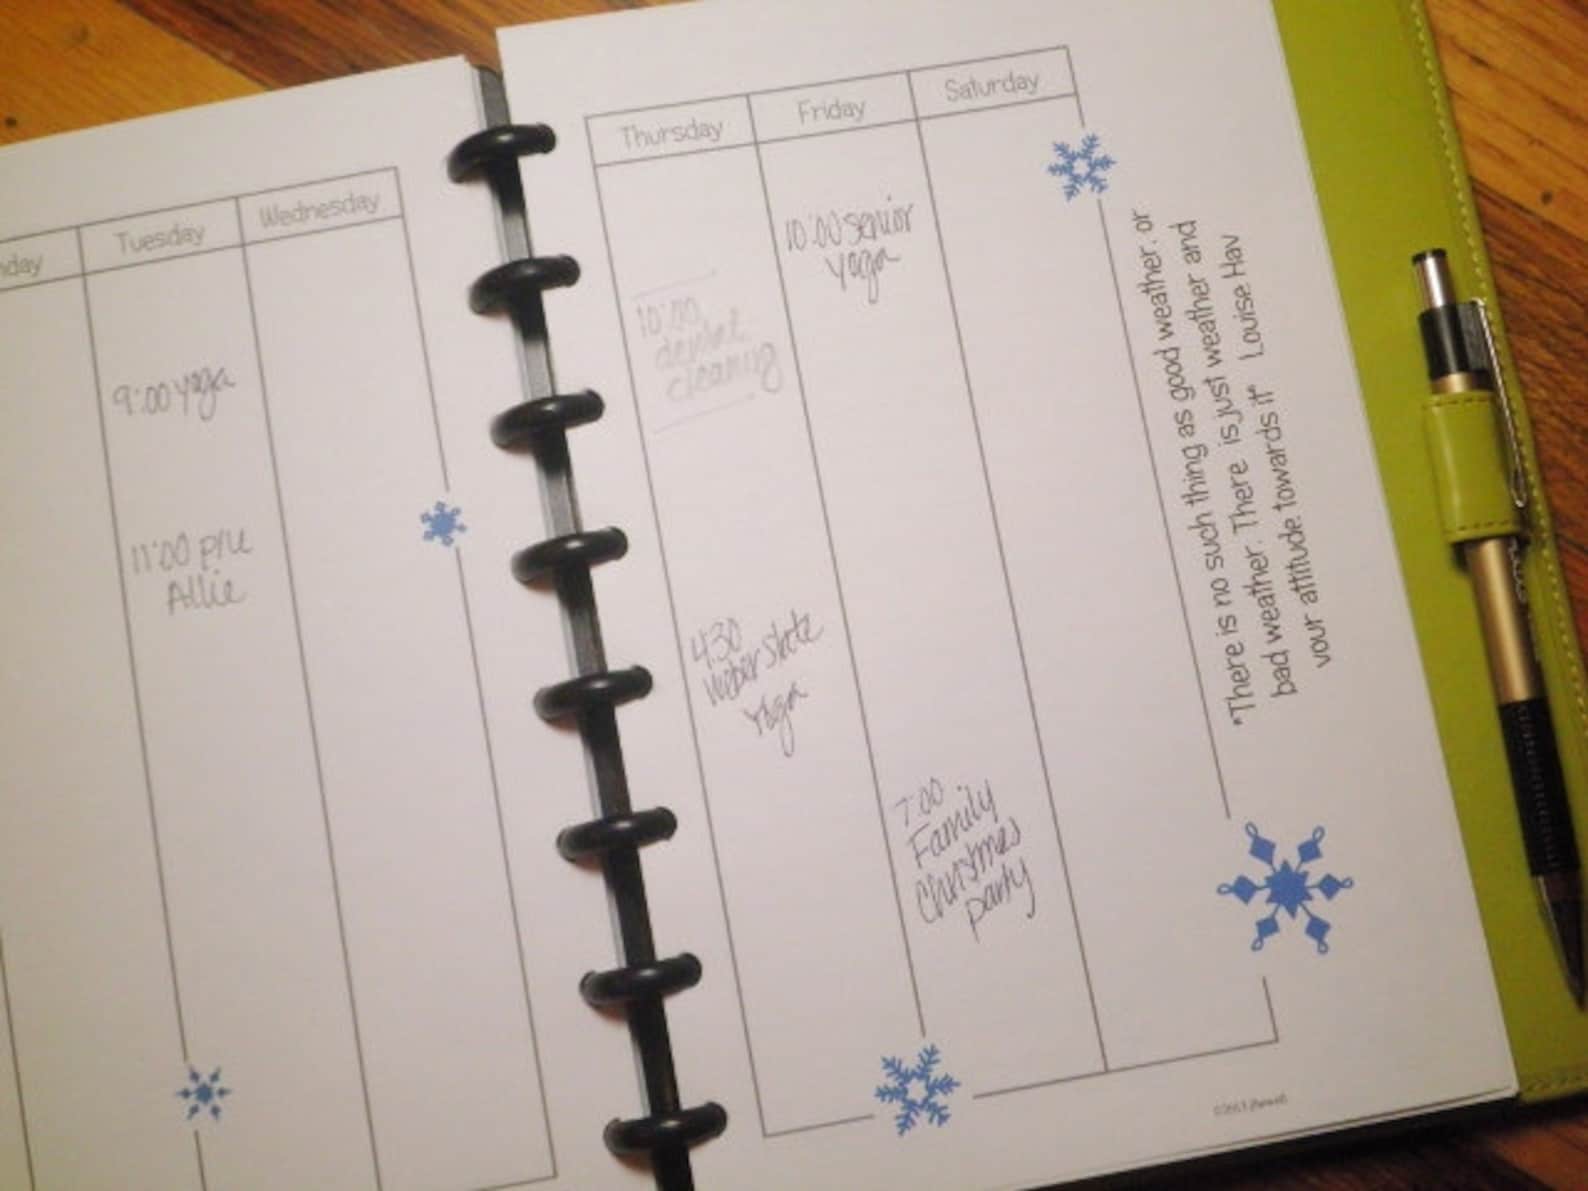 nday
Tuesday
Wednesday
9:00 yoga
11:00 p/u
Allie
Thursday
Friday
Saturday
10:00
dental
cleaning
4:30
Weber State
Yoga
10:00 senior
yoga
7:00
Family
Christmas
party
"There is no such thing as good weather, or
bad weather. There is just weather and
your attitude towards it" Louise Hay